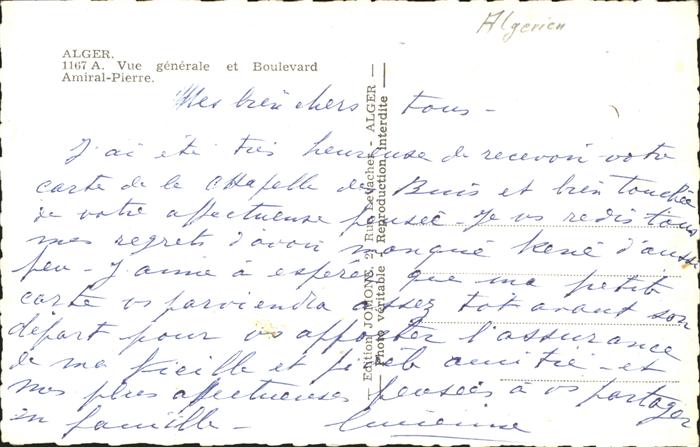 Algerien
ALGER.
1167 A. Vue générale et Boulevard
Amiral-Pierre.
Edition JOMONE, 2, Rue Levacher - ALGER
Photo véritable - Reproduction interdite
Mes bien chers tous -
J'ai été très heureuse de recevoir votre
carte de la Chapelle de Buis et bien touchée
de votre affectueuse pensée - Je vs redis tous
mes regrets d'avoir manqué René d'aussi
peu - J'aime à espérer que ma petite
carte vs parviendra assez tôt avant son
départ pour vs apporter l'assurance
de ma vieille et amitié - et
mes plus affectueuses pensées à vs partager
en famille - Lucienne